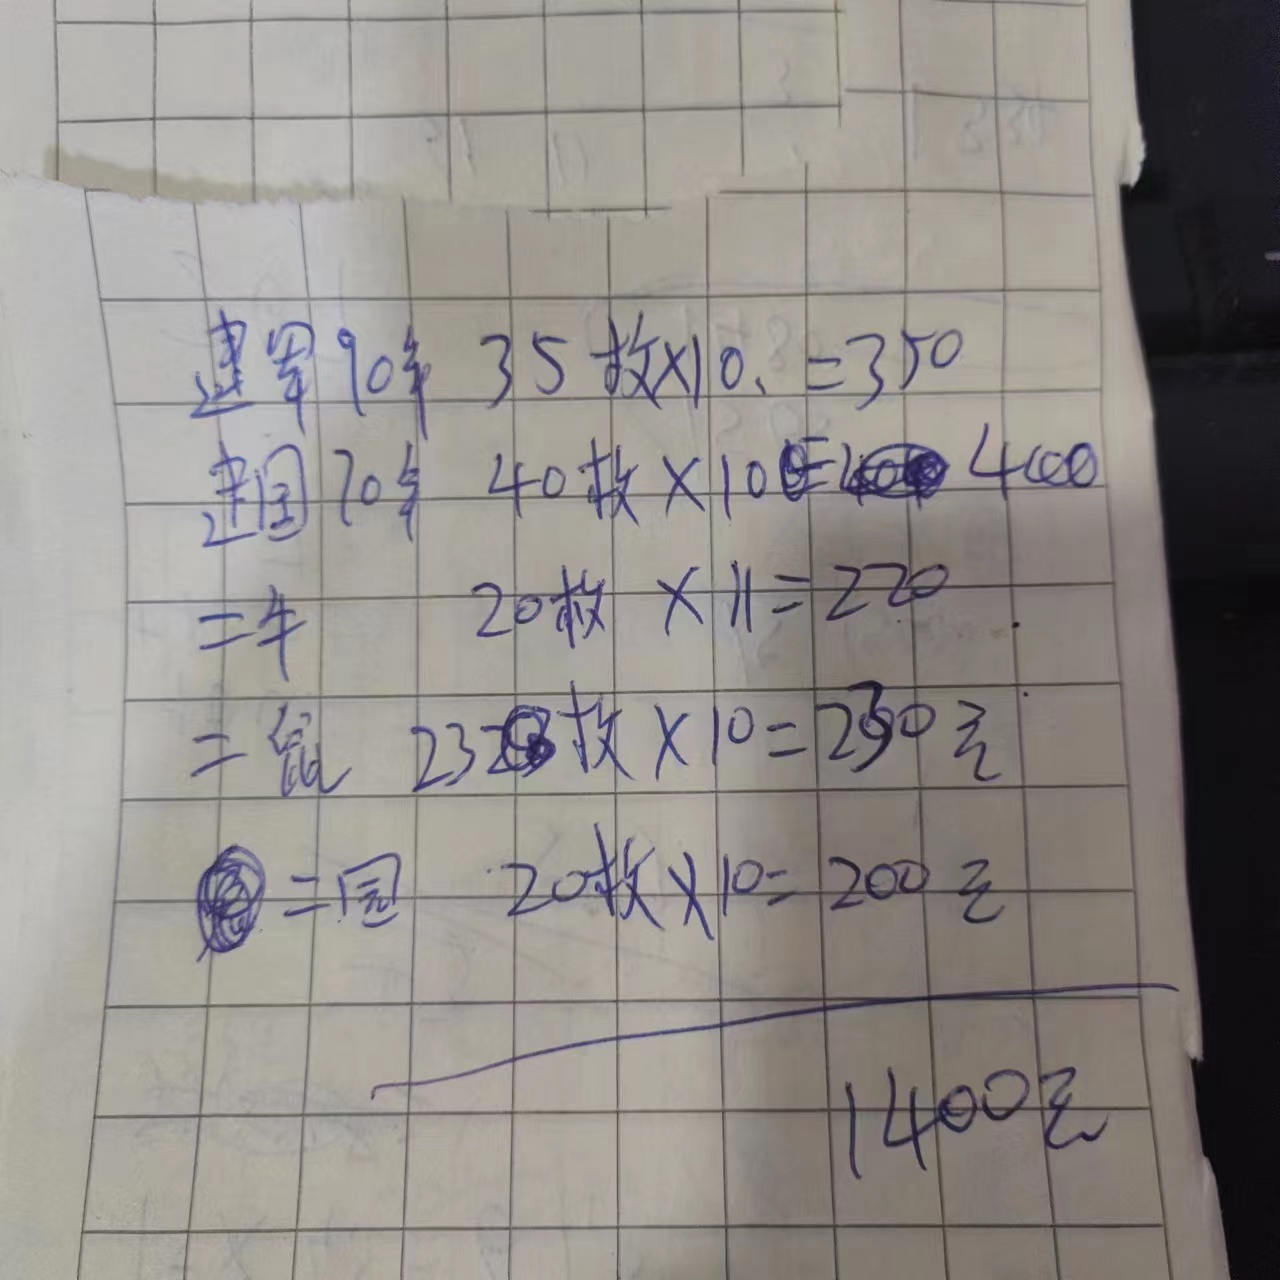 建军90年 35枚×10. =350
建国70年 40枚×10= 400
二牛 20枚 ×11=220
二鼠 23枚×10=230元
二国 20枚×10=200元
1400元